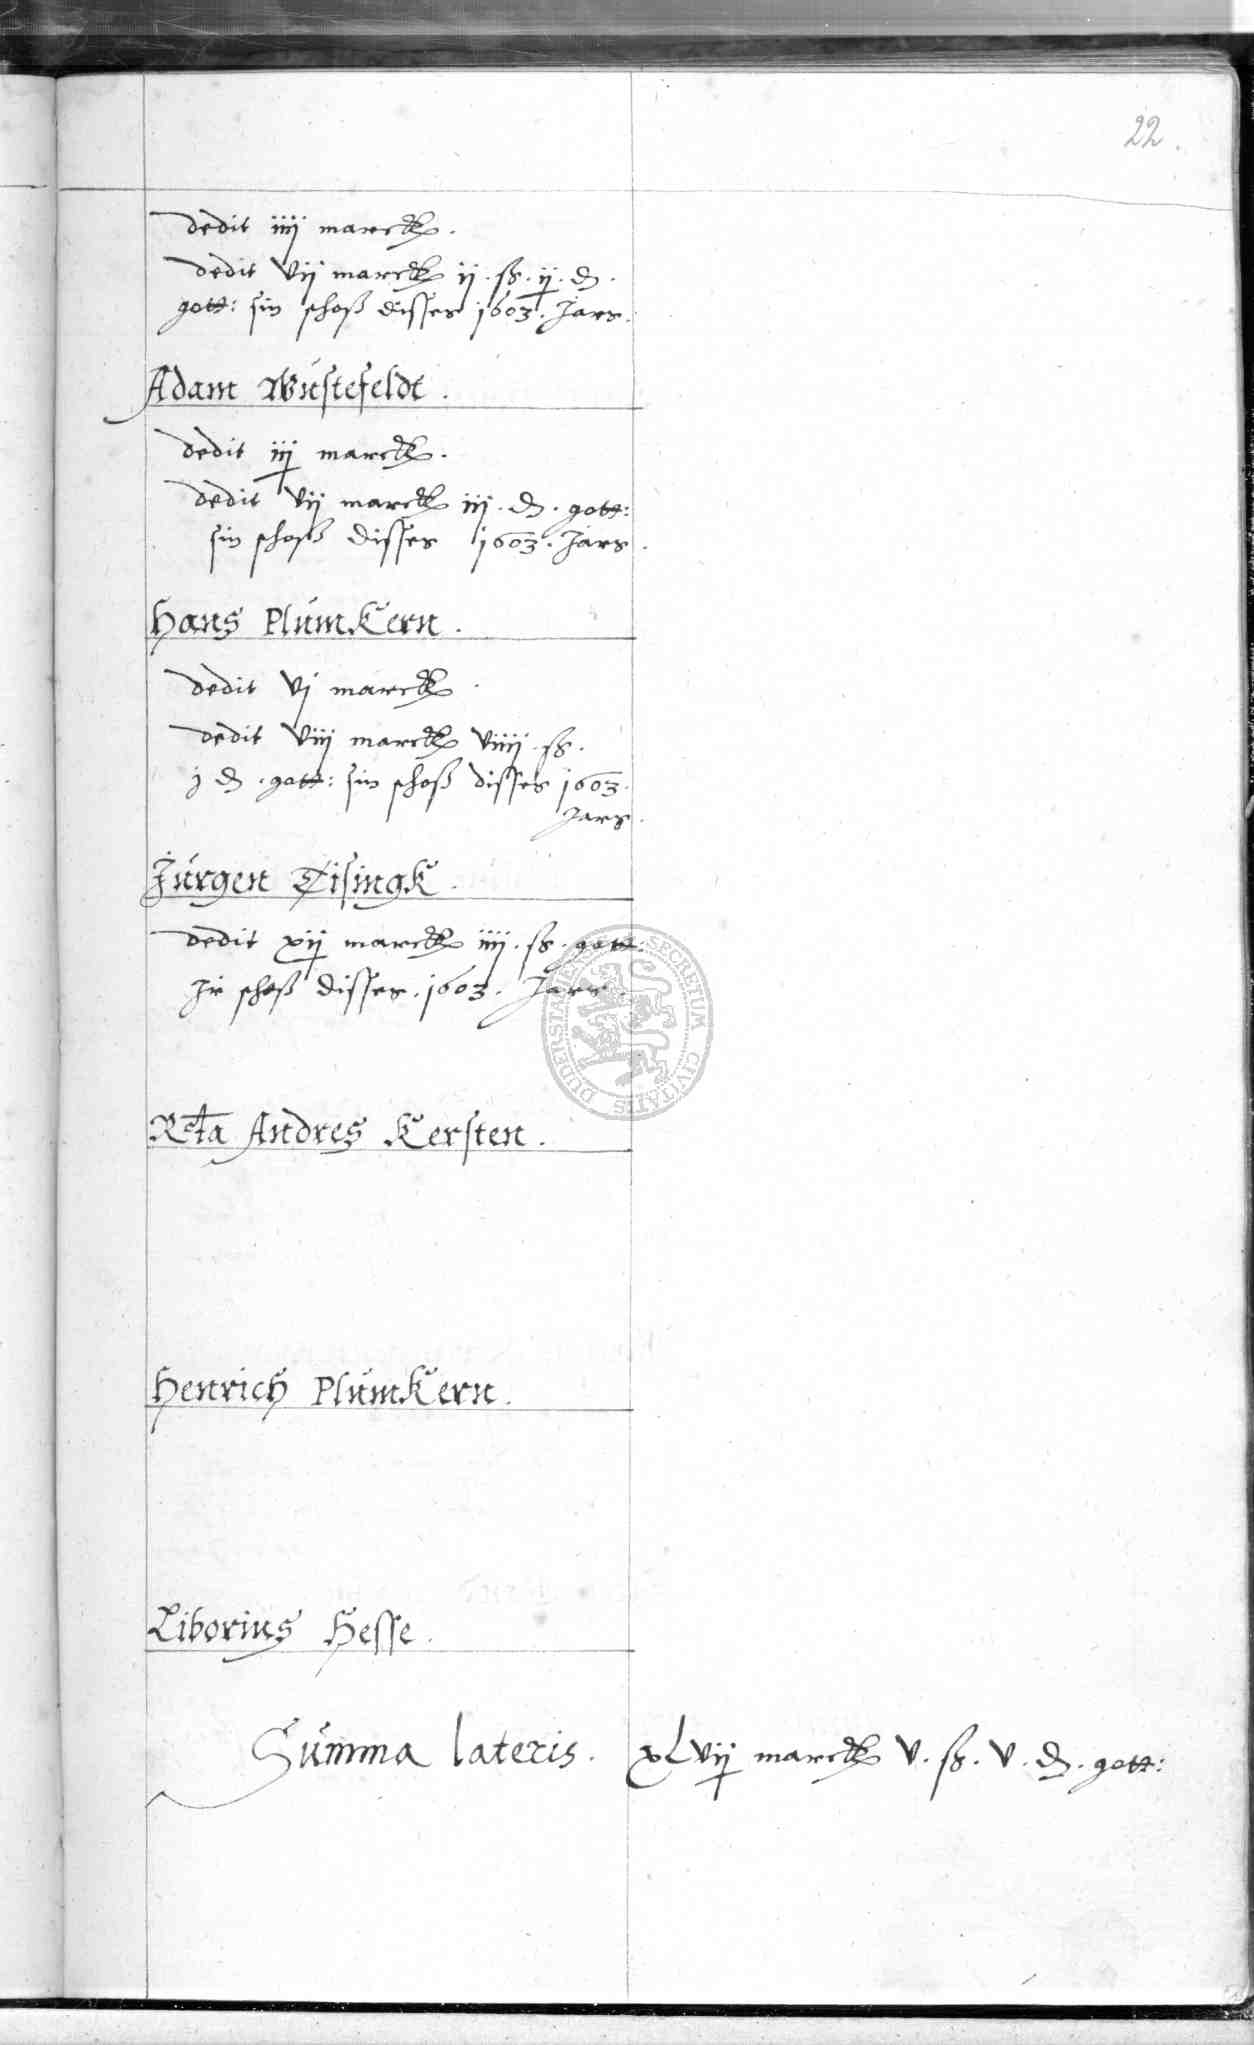 22.
dedit iiij marck.
dedit vij marck ij. ß. ij. d.
gott: sin schoß disses 1603. Jars.
Adam Wústefeldt.
dedit iij marck.
dedit vij marck iij. d. gott:
sin schoß disses 1603. Jars.
Hans PlúmKern.
dedit vj marck.
dedit viij marck viiij. ß.
j d. gott: sin schoß disses 1603.
Jars.
Júrgen Tisingk.
dedit xij marck iiij. ß. gott:
Jr schoß disses. 1603. Jars.
SECRETUM CIVITATIS DUDERSTATENSIS
Rcta Andres Kersten.
Henrich PlúmKern.
Liborius Hesse.
Summa lateris. xLvij marck v. ß. v. d. gott: